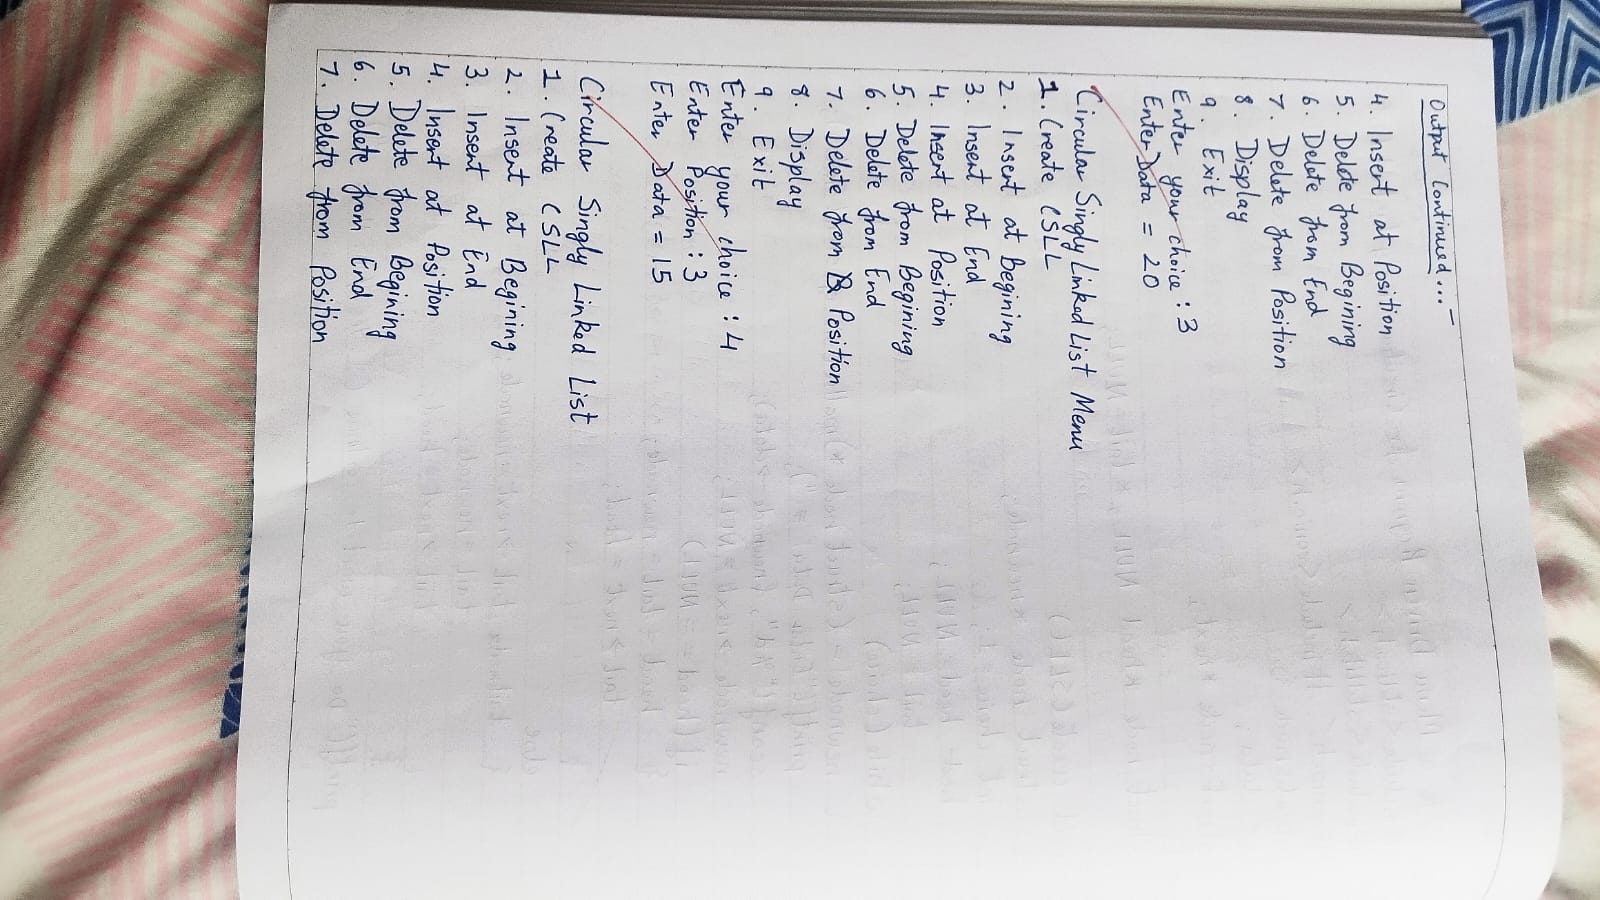 Output Continued...
4. Insert at Position
5. Delete from Begining
6. Delete from End
7. Delete from Position
8. Display
9. Exit
Enter your choice : 3
Enter Data = 20
Circular Singly Linked List Menu
1. Create CSLL
2. Insert at Begining
3. Insert at End
4. Insert at Position
5. Delete from Begining
6. Delete from End
7. Delete from Position
8. Display
9. Exit
Enter your choice : 4
Enter Position : 3
Enter Data = 15
Circular Singly Linked List
1. Create CSLL
2. Insert at Begining
3. Insert at End
4. Insert at Position
5. Delete from Begining
6. Delete from End
7. Delete from Position